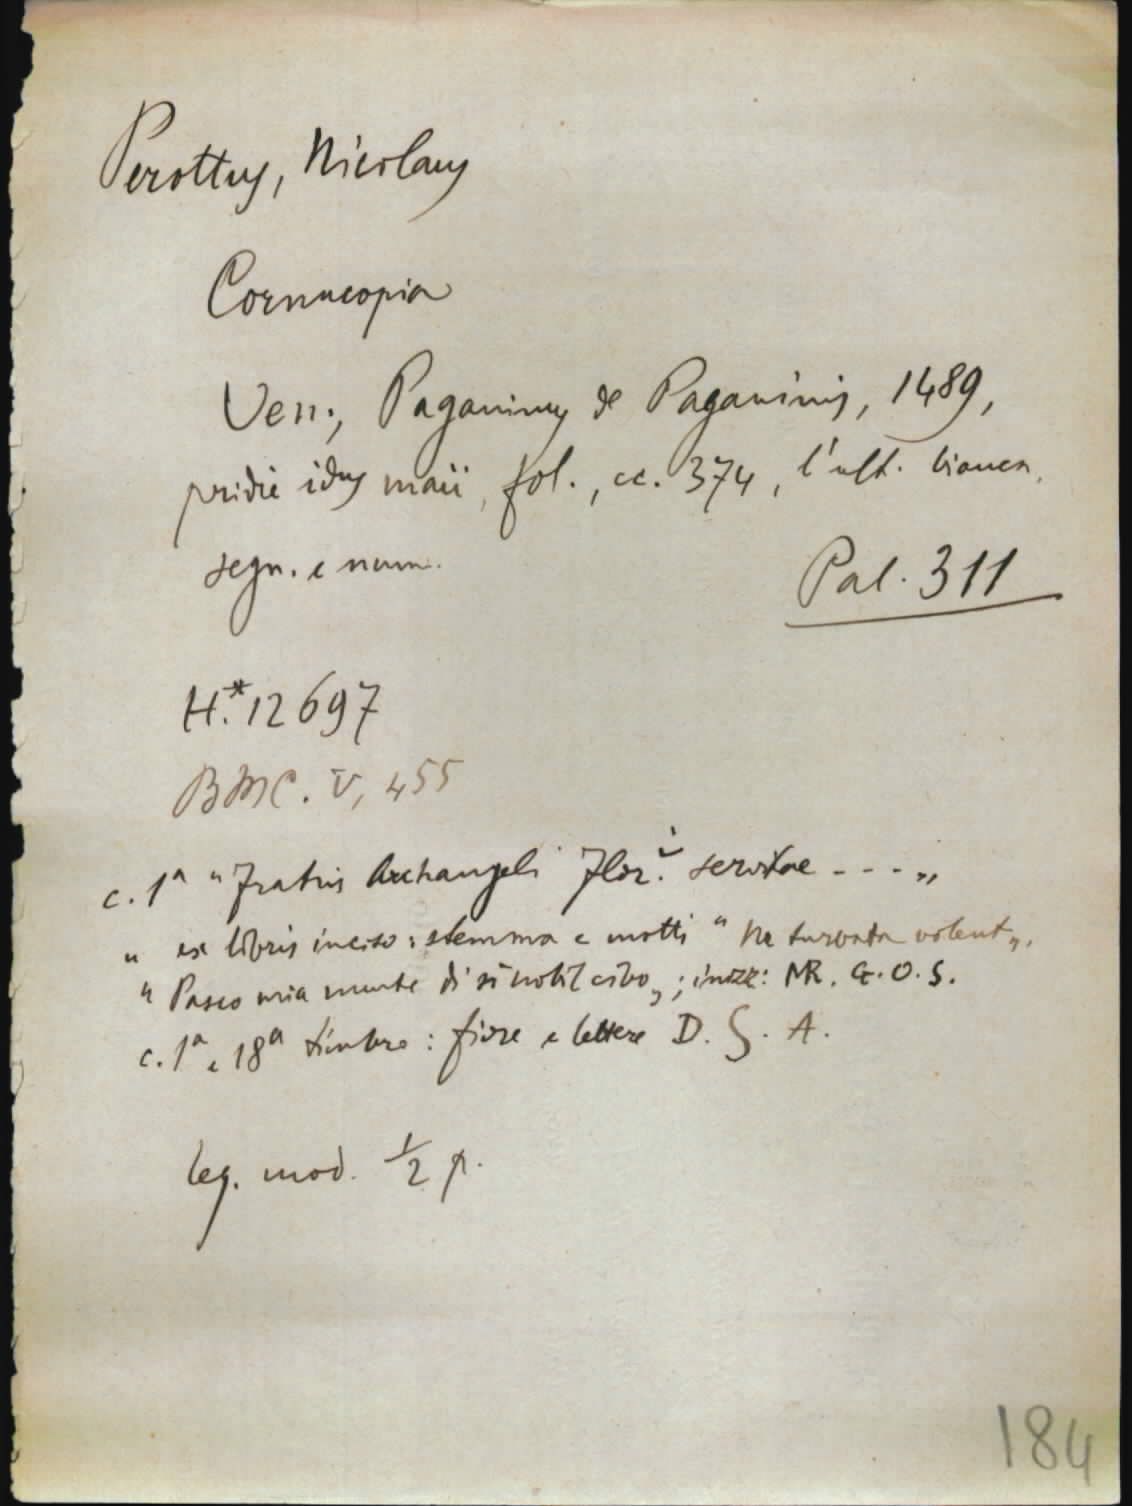 Perottus, Nicolaus
Cornucopia
Ven., Paganinus de Paganinis, 1489,
pridie idus maii, fol., cc. 374, l'ult. bianca,
segn. e num.
Pal. 311
H.* 12697
BMC. V, 455
c. 1ª "Fratris Archangeli Flor.ⁱ servitae ---„
" ex libris inciso: stemma e motti " Ne turbata volent„,
" Pasco mia mente di sì nobil cibo„; inizz: MR. G. O. S.
c. 1ª e 18ª timbro: fiore e lettere D. S. A.
leg. mod. 1/2 p.
184